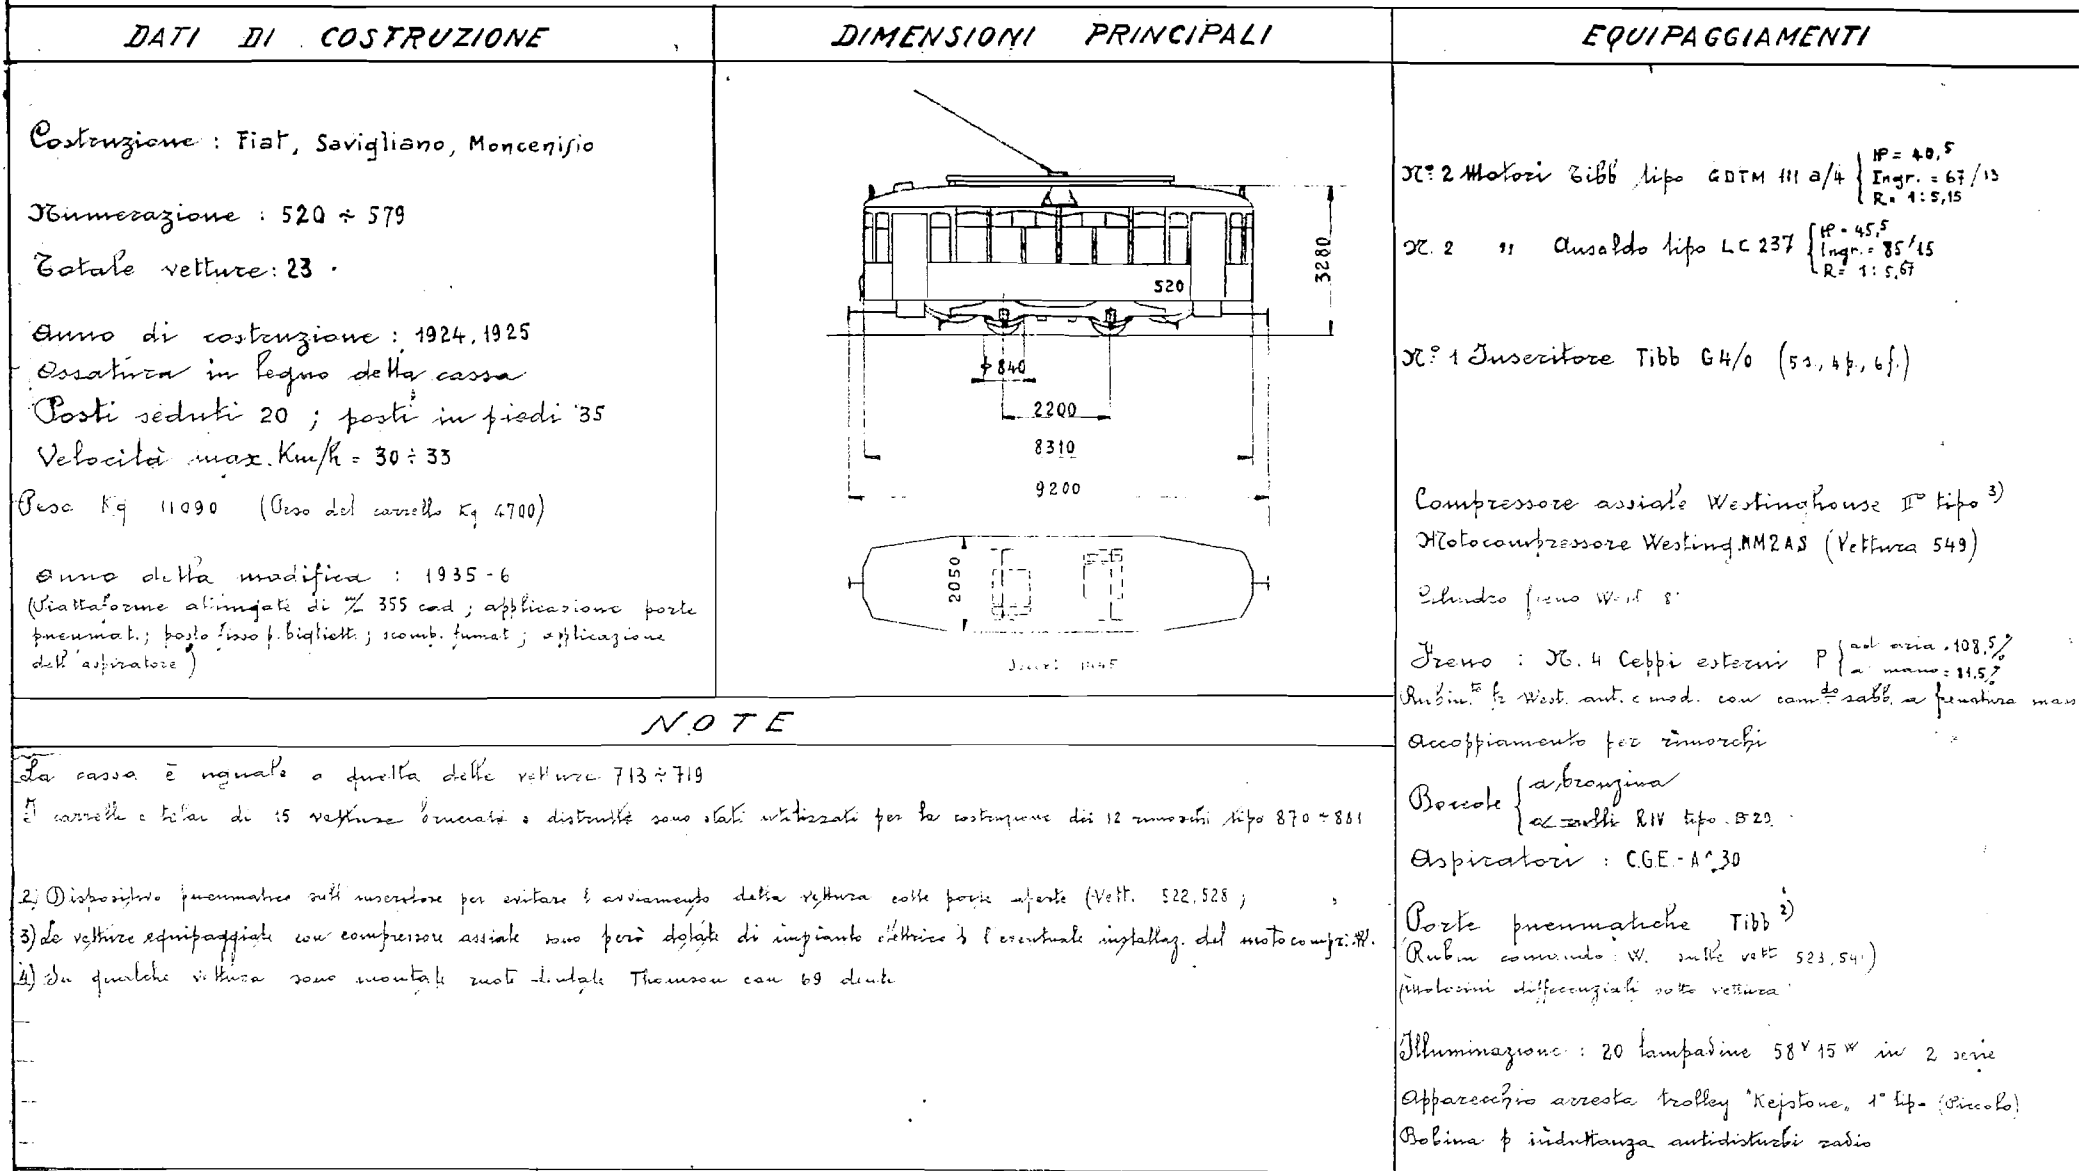 DATI DI COSTRUZIONE
Costruzione : Fiat, Savigliano, Moncenisio
Numerazione : 520 ÷ 579
Totale vetture: 23
Anno di costruzione : 1924, 1925
Ossatura in legno della cassa
Posti seduti 20 ; posti in piedi 35
Velocità max. Km/h = 30 ÷ 33
Peso Kg 11090 (Peso del carrello Kg 4700)
Anno della modifica : 1935-6
(Piattaforme allungate di m/m 355 cad ; applicazione porte
pneumat. ; posto fisso p. bigliett. ; scomp. fumat ; applicazione
dell'aspiratore)
DIMENSIONI PRINCIPALI
520
3280
ϕ 840
2200
8310
9200
2050
EQUIPAGGIAMENTI
N.° 2 Motori Tibb tipo GDTM 111 a/4 { HP = 40,5
Ingr. = 67/13
R = 1:5,15
N. 2 " Ansaldo tipo LC 237 { HP = 45,5
Ingr. = 85/15
R = 1:5,67
N.° 1 Inseritore Tibb G4/0 (5s., 4p., 6f.)
Compressore assiale Westinghouse II° tipo 3)
Motocompressore Westing. MM2AS (Vettura 549)
Cilindro freno West 8"
Freno : N. 4 Ceppi esterni P { ad aria = 108,5%
a mano = 81,5%
West. ant. e mod. con sabb. a frenatura
Accoppiamento per rimorchi
Boccole { a bronzina
a rulli RIV tipo
Aspiratori : C.G.E.
Porte pneumatiche Tibb 2)
Rubin comando W. sulle vett 523,
differenziali sotto vettura
Illuminazione : 20 lampadine 58V 15W in 2 serie
Apparecchio arresta trolley "Kejstone" 1° tipo (Piccolo)
Bobina p induttanza antidisturbi radio
NOTE
La cassa è uguale a quella delle vetture 713 ÷ 719
I carrelli e telai di 15 vetture bruciate o distrutte sono stati utilizzati per la costruzione dei 12 rimorchi tipo 870 ÷ 881
2) Dispositivo pneumatico sull'inseritore per evitare l'avviamento della vettura colle porte aperte (Vett. 522, 528 ;
3) Le vetture equipaggiate con compressore assiale sono però dotate di impianto elettrico p l'eventuale installaz. del motocompr. W.
4) In qualche vettura sono montate ruote dentate Thomson con 69 denti